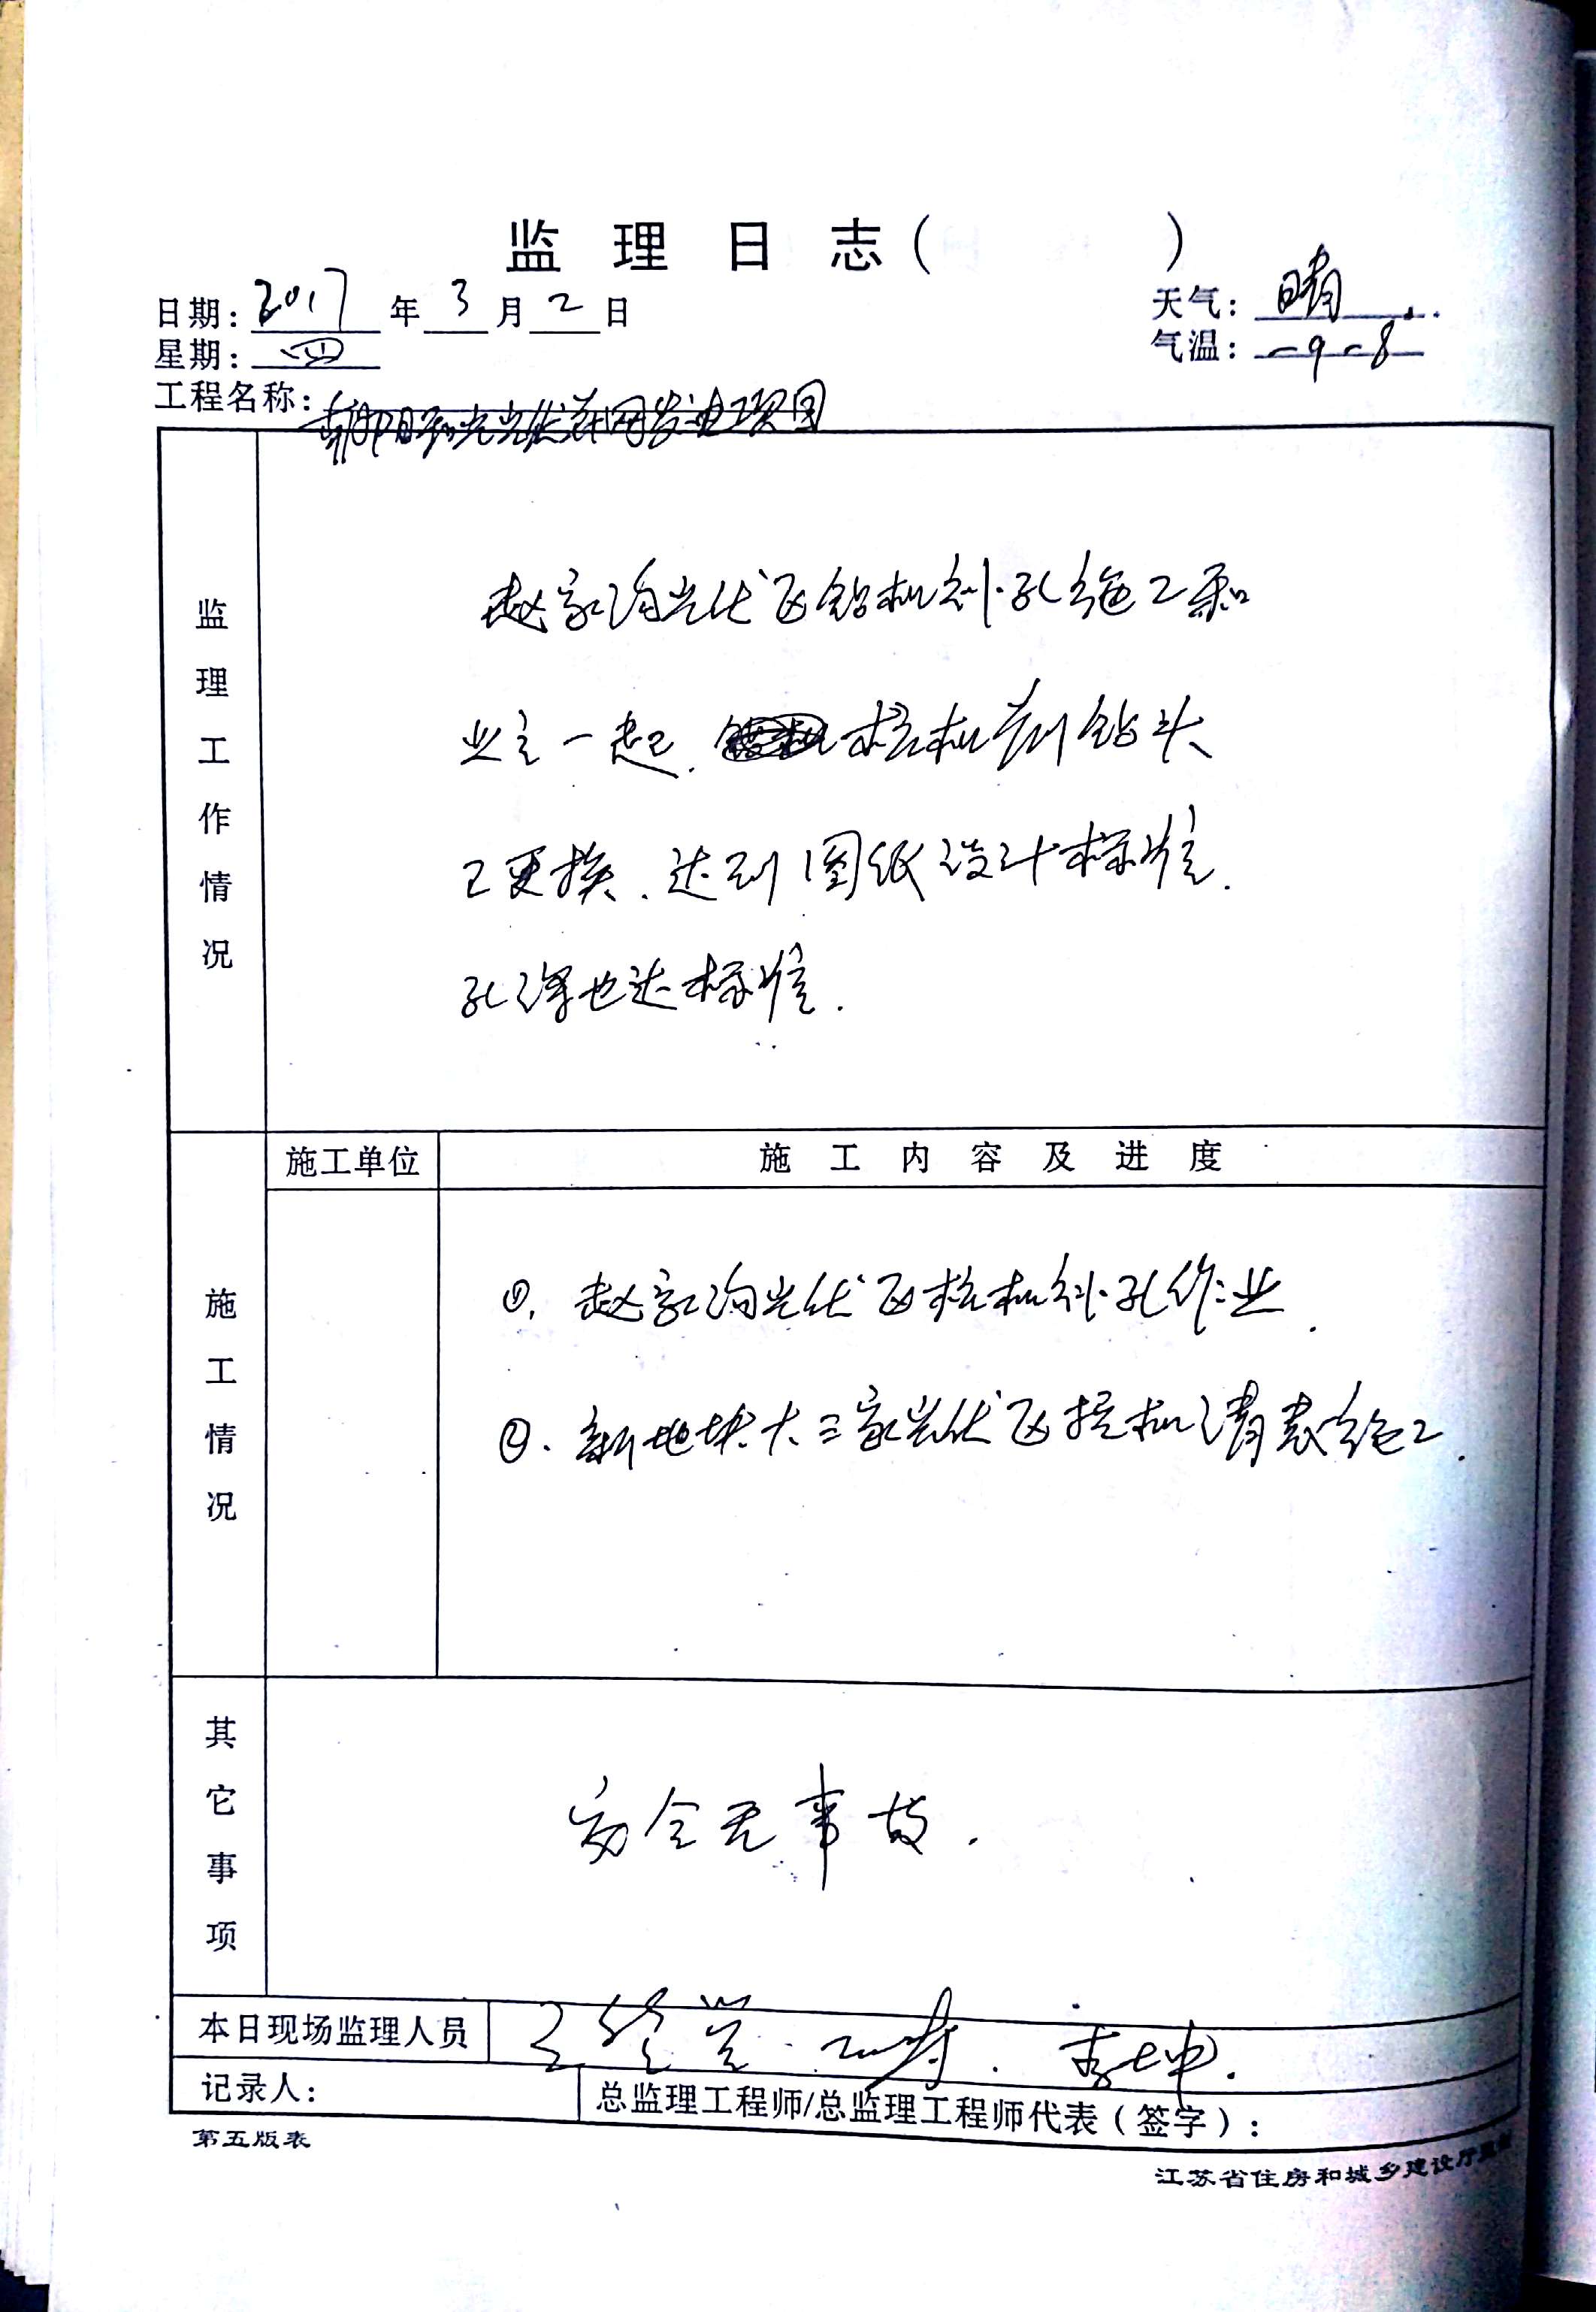 监理日志（ ）
日期：2017年3月2日
天气：晴
星期：四
气温：-9-8
工程名称：朝阳光伏并网发电项目
监理工作情况
赵家沟光伏区钻机补孔施工和
业主一起.桩机前钻头
已更换.达到图纸设计标准.
孔深也达标准.
施工情况
施工单位
施工内容及进度
①.赵家沟光伏区桩机补孔作业.
②.新地块大三家光伏区挖机清表施工.
其它事项
安全无事故.
本日现场监理人员
李坤.
记录人：
总监理工程师/总监理工程师代表（签字）：
第五版表
江苏省住房和城乡建设厅监制